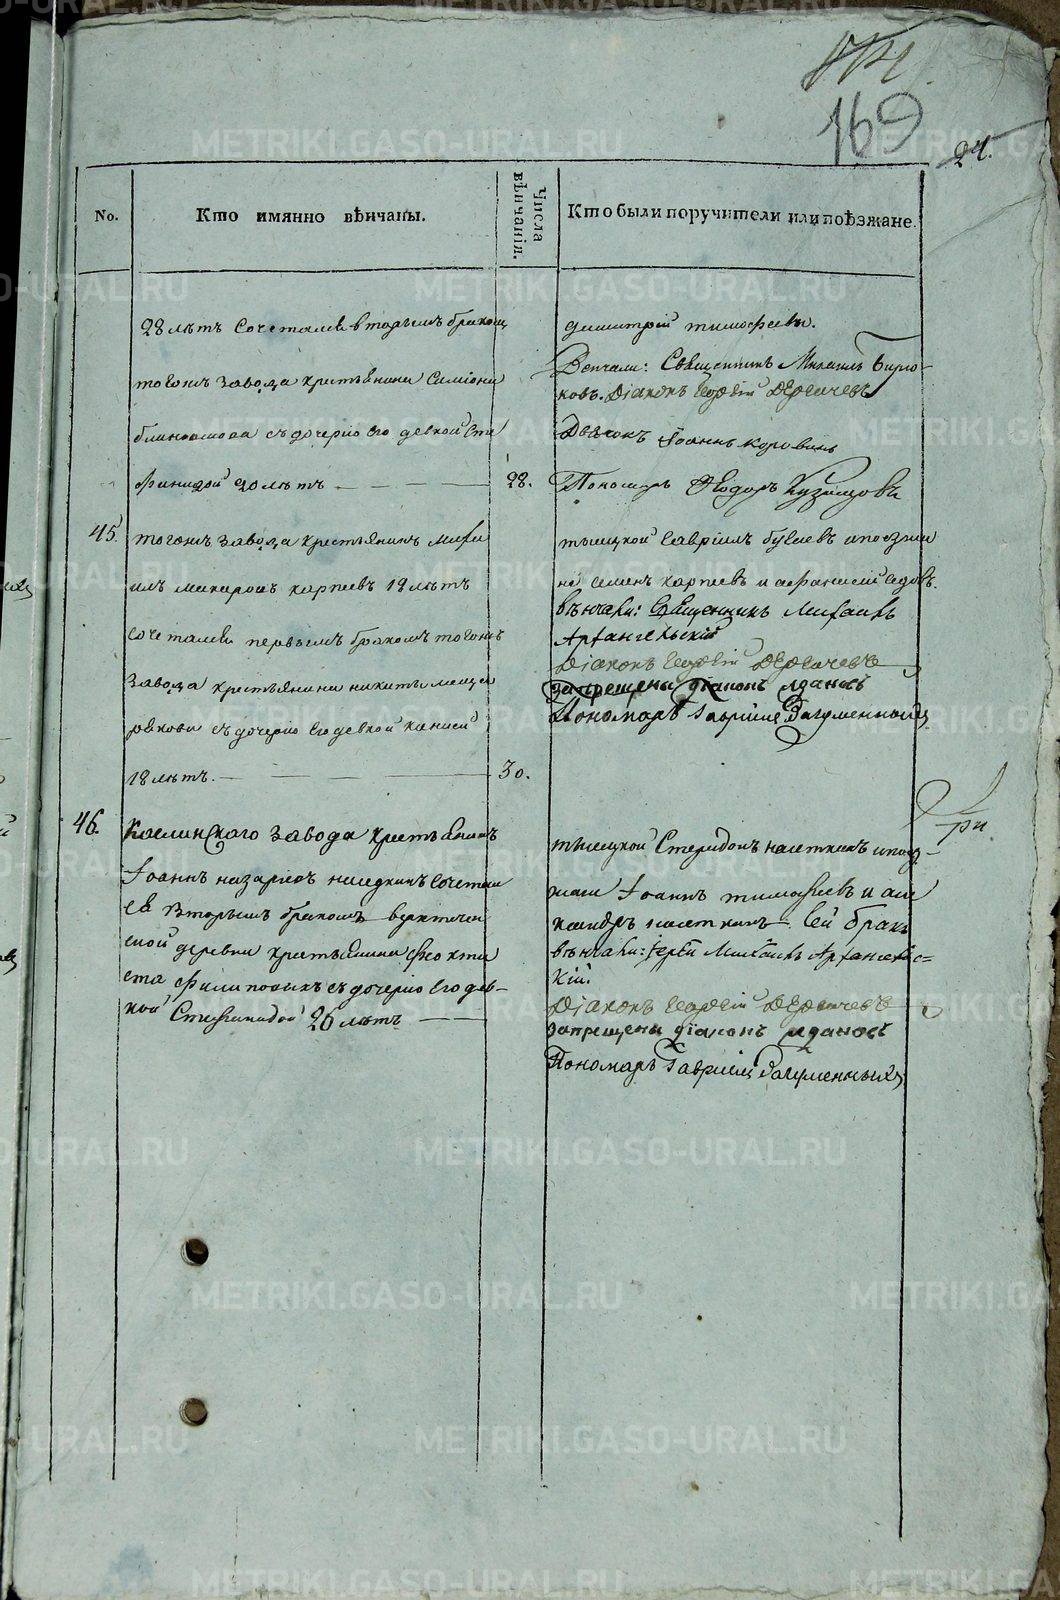 169
24.
No.
Кто имянно вѣнчаны.
Числа вѣнчанія.
Кто были поручители или поѣзжане.
28 лѣтъ сочетался вторымъ бракомъ
тогожъ завода крестьянина Симіона
съ дочерію его девкой Сте
фанидой 20 лѣтъ
28.
димитрій тимофеевъ.
Венчали: Священникъ Михаилъ Бирю-
ковъ. Діаконъ Георгій Дергачевъ
Дьячокъ Іоаннъ Коровинъ
Пономарь Ѳеодоръ Кузнцовъ
45.
тогожъ завода крестьянинъ Миха
илъ макаровъ карпеевъ 19 лѣтъ
сочетался первымъ бракомъ тогожъ
завода крестьянина никиты меще
рякова съ дочерію его девкой
18 лѣтъ.
30.
тысяцкой Гавріилъ бугаевъ и поезжа
не семенъ карпеевъ и афанасій седовъ.
вѣнчали: Священникъ Михаилъ
Архангельскій
Діаконъ Георгій Дергачевъ
запрещены діаконъ
Пономарь Гавріилъ Загуменныхъ
46.
Каслинскаго завода крестьянинъ
Іоаннъ назаровъ наседкинъ сочетал
ся вторымъ бракомъ
ской деревни крестьянина феокти
ста Филиповыхъ съ дочерію его дев-
кой Стефанидой 26 лѣтъ
тысяцкой Спиридонъ наседкинъ и поез-
жане Іоаннъ тимофеевъ и але
ксандръ наседкинъ Сей бракъ
вѣнчали: іерей Михаилъ Архангельс=
кій.
Діаконъ Георгій Дергачевъ
запрещены діаконъ
Пономарь Гавріилъ Загуменныхъ
три.
METRIKI.GASO-URAL.RU